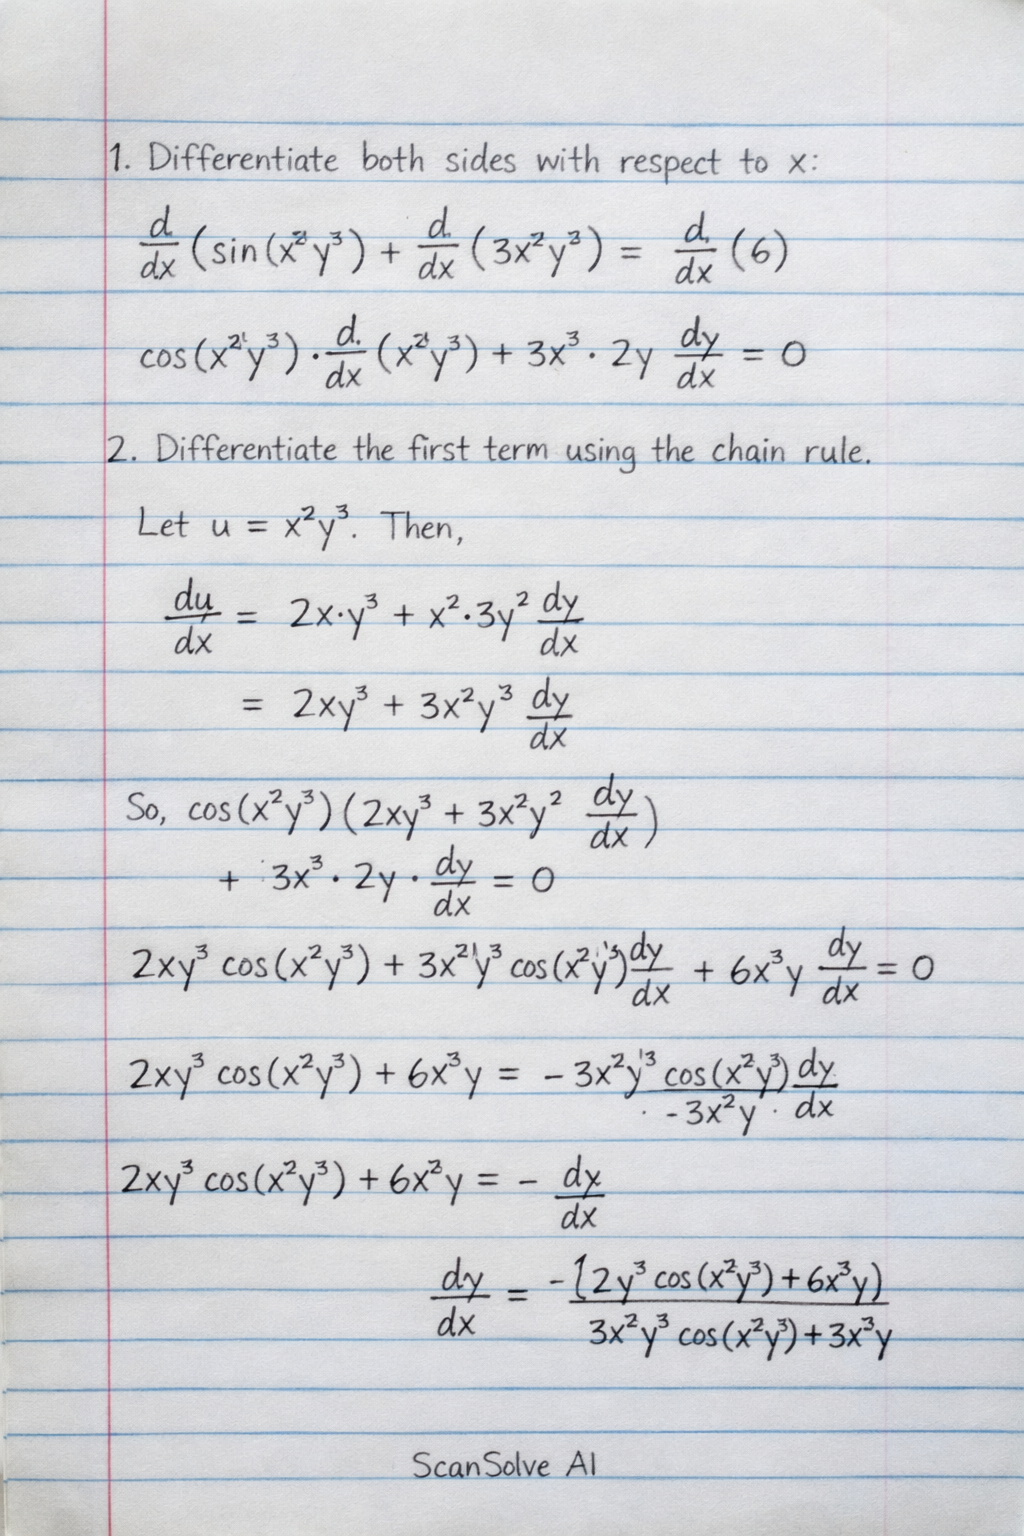 1. Differentiate both sides with respect to x:
d/dx (sin(x²y³) + d/dx (3x²y²) = d/dx (6)
cos(x²y³) · d/dx (x²y³) + 3x³ · 2y dy/dx = 0
2. Differentiate the first term using the chain rule.
Let u = x²y³. Then,
du/dx = 2x·y³ + x²·3y² dy/dx
= 2xy³ + 3x²y³ dy/dx
So, cos(x²y³)(2xy³ + 3x²y² dy/dx)
+ 3x³ · 2y · dy/dx = 0
2xy³ cos(x²y³) + 3x²y³ cos(x²y³) dy/dx + 6x³y dy/dx = 0
2xy³ cos(x²y³) + 6x³y = - 3x²y³ cos(x²y³) / -3x²y · dy/dx
2xy³ cos(x²y³) + 6x²y = - dy/dx
dy/dx = -(2y³ cos(x²y³) + 6x³y) / 3x²y³ cos(x²y³) + 3x³y
ScanSolve AI